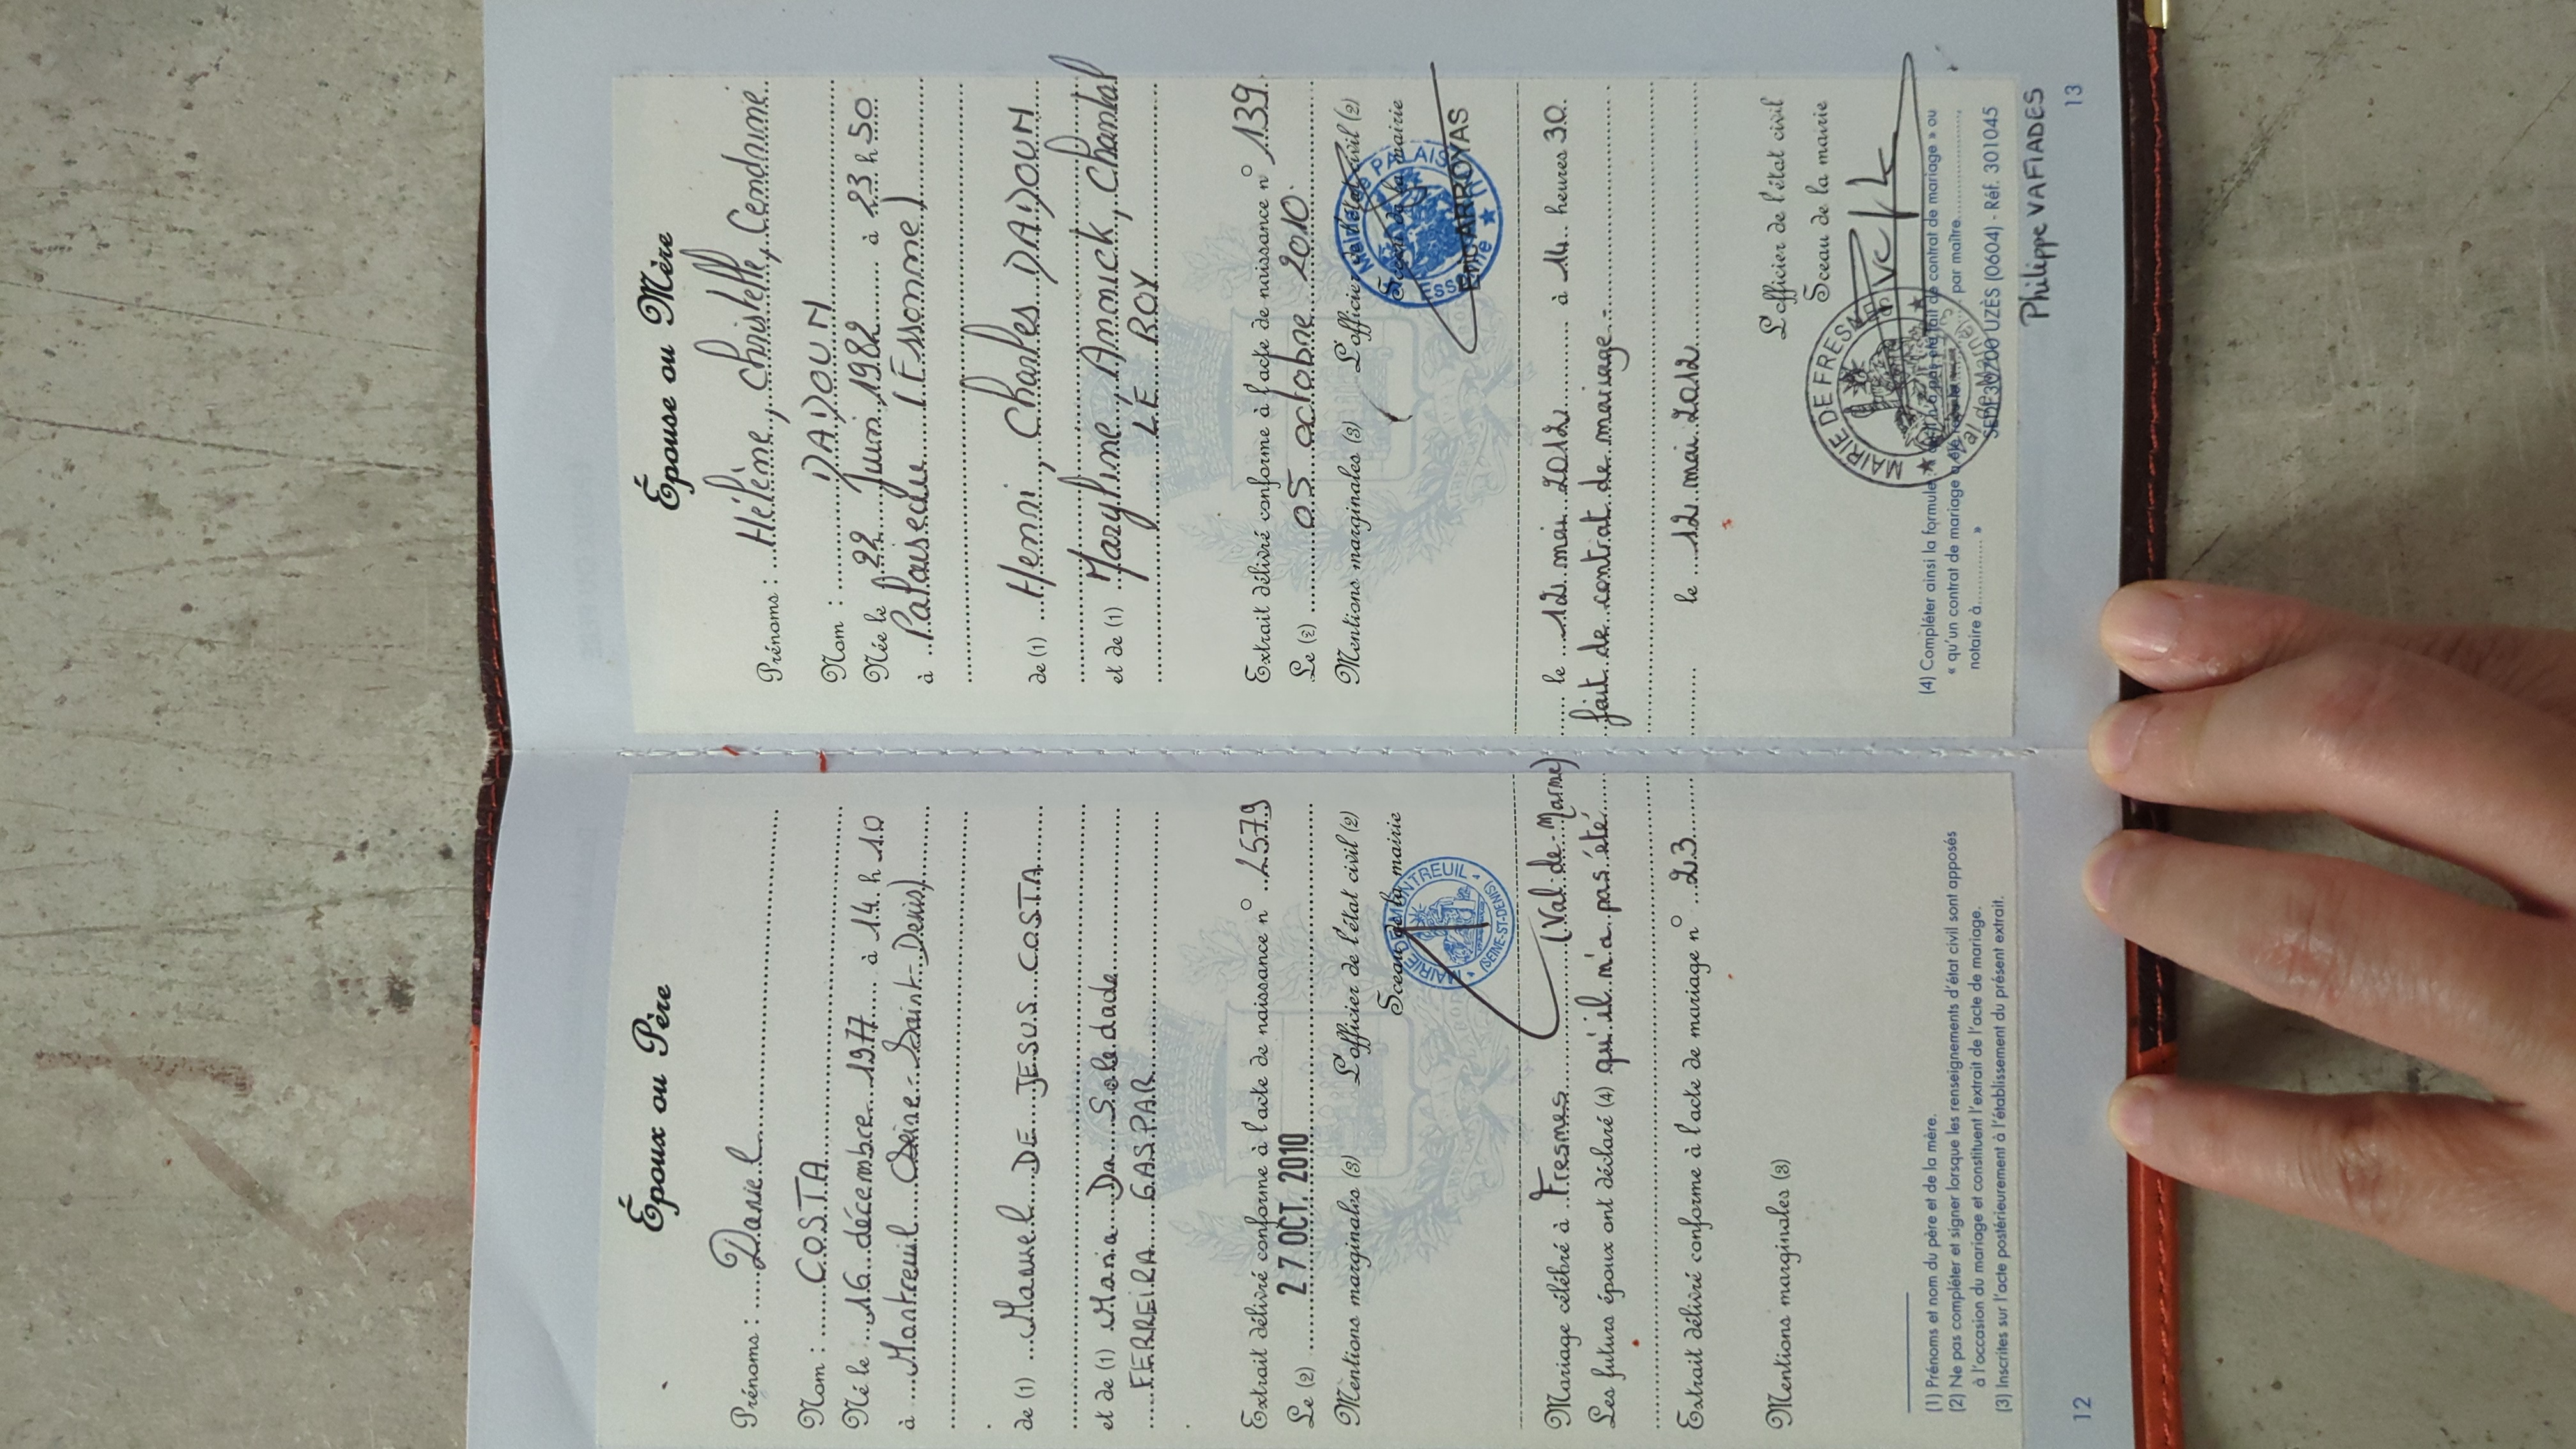 Époux ou Père
Prénoms : Daniel
Nom : COSTA
Né le 16 décembre 1977 à 14 h 10
à Montreuil (Seine-Saint-Denis)
de (1) Manuel DE JESUS COSTA
et de (1) Maria Da Soledade
FERREIRA GASPAR
Extrait délivré conforme à l'acte de naissance n° 1579
Le (2) 27 OCT. 2010
Mentions marginales (3) L'officier de l'état civil (2)
Sceau de la mairie
MAIRIE DE MONTREUIL
(SEINE-ST-DENIS)
Épouse ou Mère
Prénoms : Hélène, Christelle,
Nom : DAIDOUN
Née le 22 Juin 1982 à 23 h 50
à Palaiseau (Essonne)
de (1) Henri, Charles DAIDOUN
et de (1) Maryline, Annick, Chantal
LE ROY
Extrait délivré conforme à l'acte de naissance n° 139
Le (2) 05 octobre 2010
Mentions marginales (3) L'officier de l'état civil (2)
Sceau de la mairie
Eric ARROYAS
Mariage célébré à Fresnes (Val de Marne) le 12 mai 2012 à 14 heures 30
Les futurs époux ont déclaré (4) qu'il n'a pas été fait de contrat de mariage
Extrait délivré conforme à l'acte de mariage n° 23 le 12 mai 2012
Mentions marginales (3)
L'officier de l'état civil
Sceau de la mairie
MAIRIE DE FRESNES
Val de Marne
(1) Prénoms et nom du père et de la mère.
(2) Ne pas compléter et signer lorsque les renseignements d'état civil sont apposés
à l'occasion du mariage et constituent l'extrait de l'acte de mariage.
(3) Inscrites sur l'acte postérieurement à l'établissement du présent extrait.
12
(4) Compléter ainsi la formule : « qu'il n'a pas été fait de contrat de mariage » ou
« qu'un contrat de mariage a été reçu le par maître
notaire à »
SEDI 30700 UZÈS (0604) - Réf. 301045
Philippe VAFIADES
13